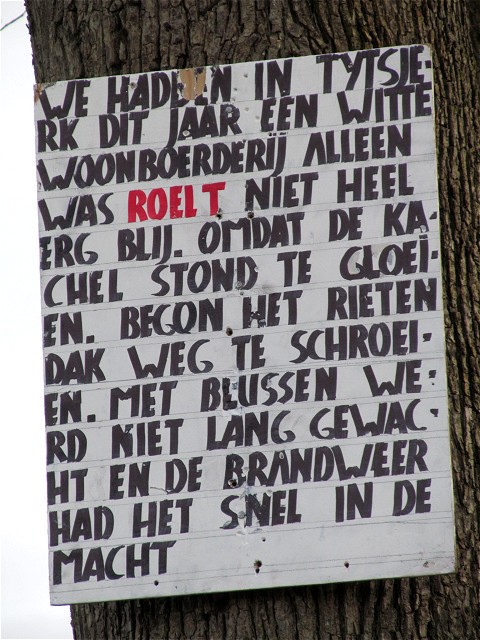 WE HADDEN IN TYTSJE-
RK DIT JAAR EEN WITTE
WOONBOERDERIJ ALLEEN
WAS ROELT NIET HEEL
ERG BLIJ. OMDAT DE KA-
CHEL STOND TE GLOEI-
EN. BEGON HET RIETEN
DAK WEG TE SCHROEI-
EN. MET BLUSSEN WE-
RD NIET LANG GEWAC-
HT EN DE BRANDWEER
HAD HET SNEL IN DE
MACHT